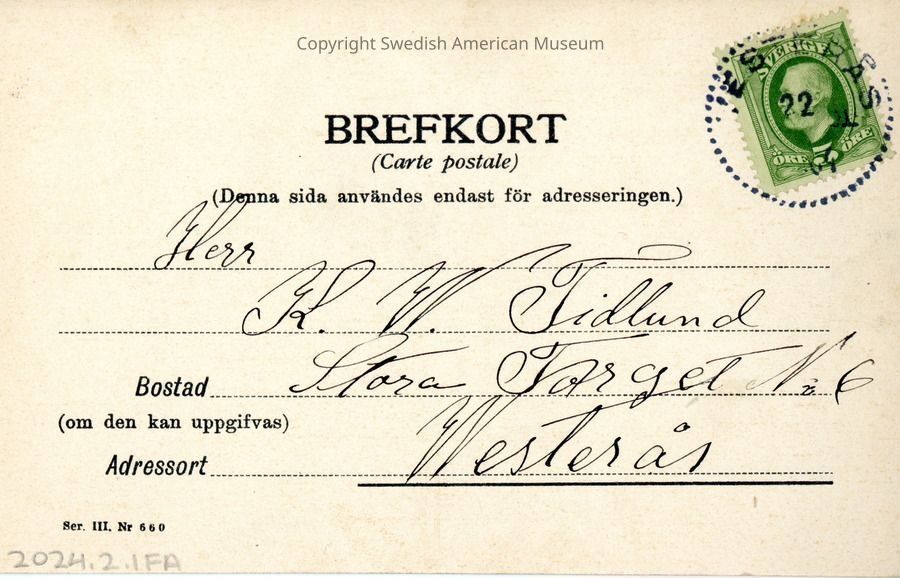 Copyright Swedish American Museum
SVERIGE
22
ÖRE ÖRE
BREFKORT
(Carte postale)
(Denna sida användes endast för adresseringen.)
Herr
K. W. Tidlund
Bostad Stora Torget No 6
(om den kan uppgifvas)
Adressort Westerås
Ser. III. Nr 660
2024.2.1FA